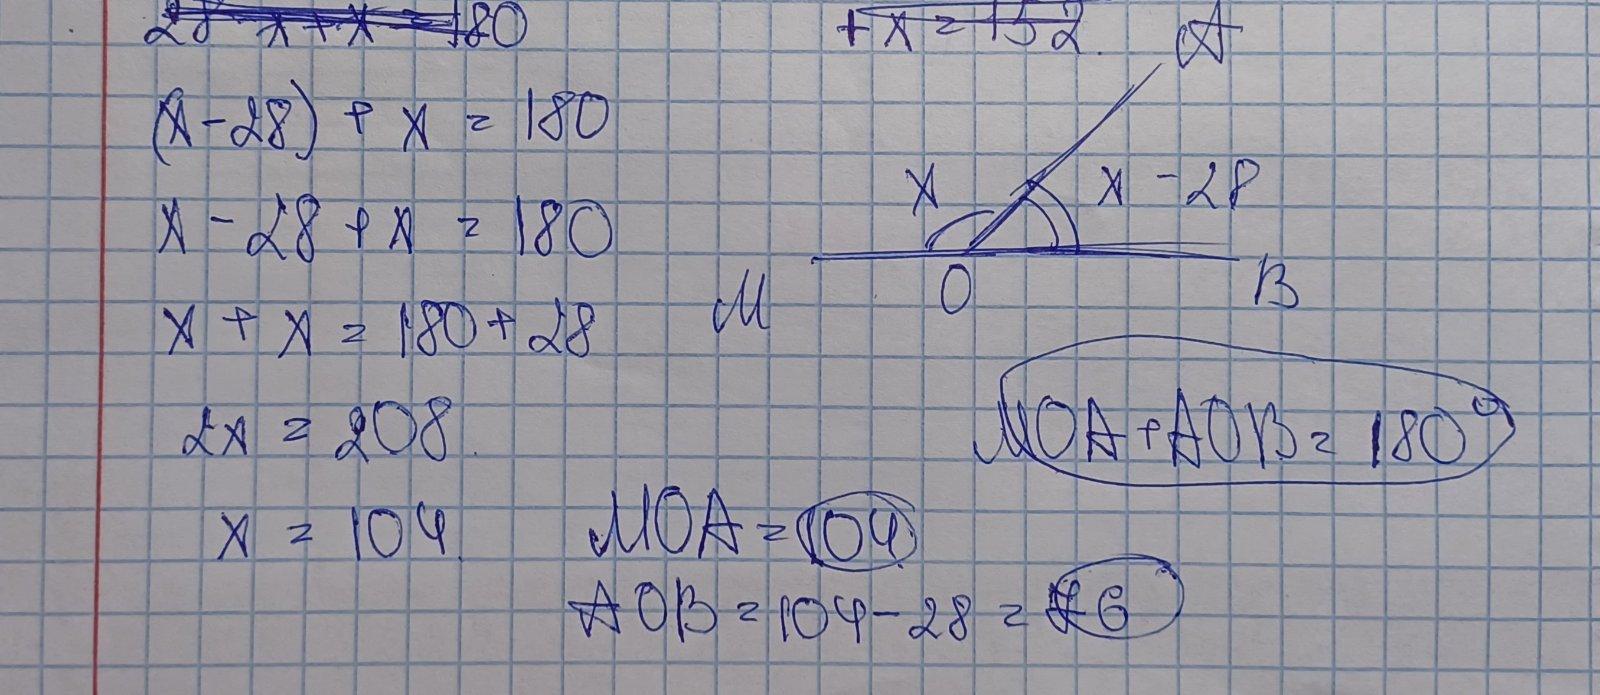 28 - x + x = 180
+ x = 152.
A
(x - 28) + x = 180
x
x - 28
x - 28 + x = 180
M
O
B
x + x = 180 + 28
MOA + AOB = 180°
2x = 208.
x = 104.
MOA = 104
AOB = 104 - 28 = 76